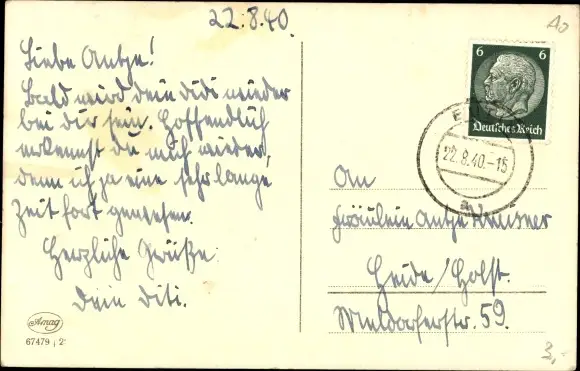 22.8.40.
Liebe Antje!
Bald wird dein Didi wieder
bei dir sein. Hoffendlich
erkennst du mich wieder,
denn ich ja eine sehr lange
Zeit fort gewesen.
Herzliche Grüße
dein Diti.
Amag
67479 | 2
6 6
Deutsches Reich
22.8.40.-15
An
Fräulein Antje
Heide/Holst.
Meldorferstr. 59.
3,-